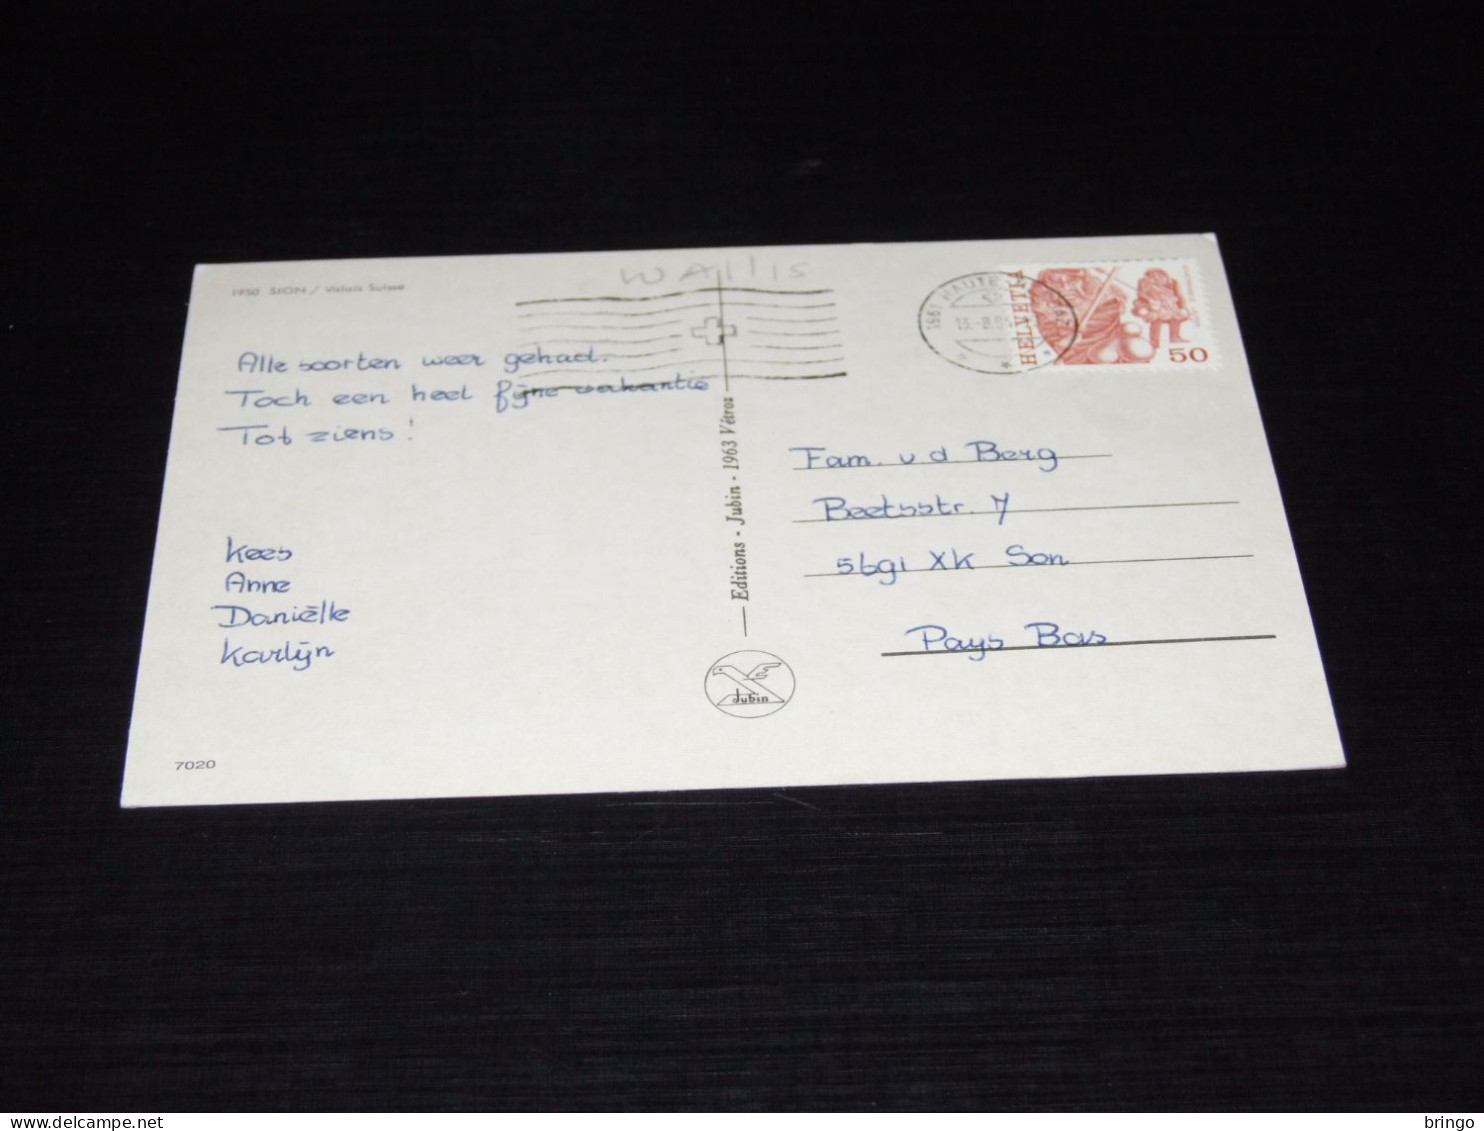 WAllis
1950 SION / Valais Suisse
Alle soorten weer gehad.
Toch een heel fijne vakantie
Tot ziens!
Kees
Anne
Daniëlle
Karlijn
7020
Editions - Jubin - 1963 Vétroz
Jubin
1961 HAUTE
HELVETIA
50
Fam. v d Berg
Beetsstr. 7
5691 XK Son
Pays Bas
www.delcampe.net
bringo